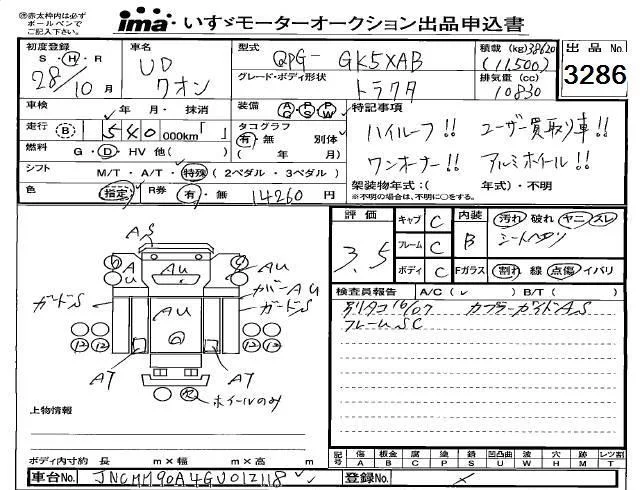 ㊟赤太枠内は必ず
ボールペンで
ご記入下さい。
ima いすゞモーターオークション出品申込書
初度登録 S・H・R 28年 10月
車名 UD クオン
型式 QPG- GK5XAB
積載 (kg) 38620 (11,500)
排気量 (cc) 10830
出品No. 3286
グレード・ボディ形状 トラクタ
車検 年 月・抹消
装備 AC PS PW
特記事項
走行 B 540 000km「 」
タコグラフ 有・無 別体 ( 年 月)
ハイルーフ!! ユーザー買取り車!!
燃料 G・D・HV 他( )
ワンオーナー!! アルミホイール!!
シフト M/T・A/T・特殊 ( 2ペダル・3ペダル )
架装物年式:( 年式)・不明
※不明の場合は、不明に○をする。
色 指定 R券 有・無 14260 円
評価 3.5
キャブ C
フレーム C
ボディ C
内装 B
汚れ 破れ ヤニ スレ
シートヘタリ
Fガラス 割れ 線 点傷 イバリ
検査員報告 A/C( ) B/T( )
別タコ 16/07 カプラーガイドAS
フレームSC
AS
AU
AU
A
A
AU
カバーAU
ガードS
AU
ガードS
12 12 12 12
AT
AT
ホイールのみ
上物情報
ボディ内寸約 長 m×幅 m×高 m
記号 傷A 板金B 腐C 塗P 錆S 凹凸曲U 波W 穴H 跡M レツ割T
車台No. JNCMM90A4GU012118
登録No.